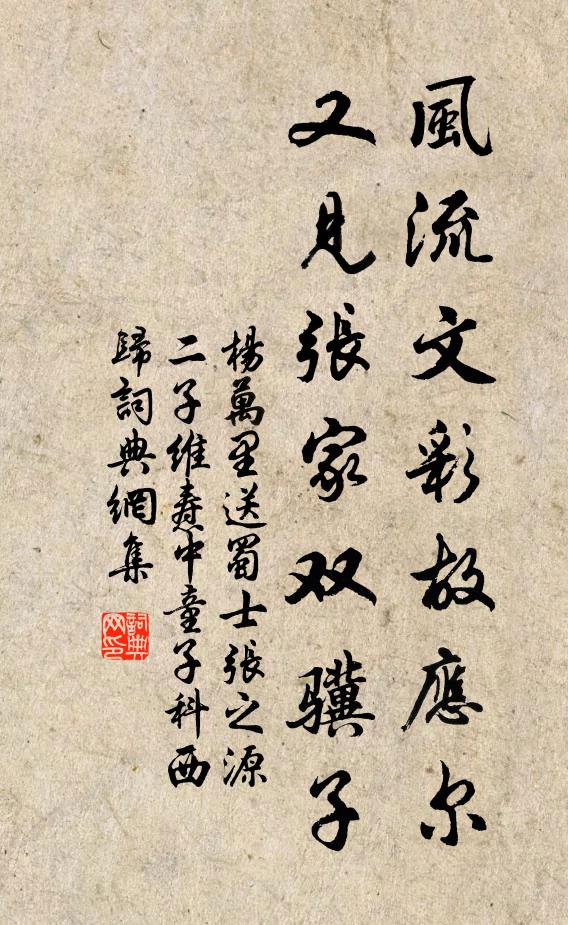 風流文彩故應尔
又見張家双骥子
楊萬里送蜀士張之源
二子維焘中童子科西
歸詞典網集
詞典
网印